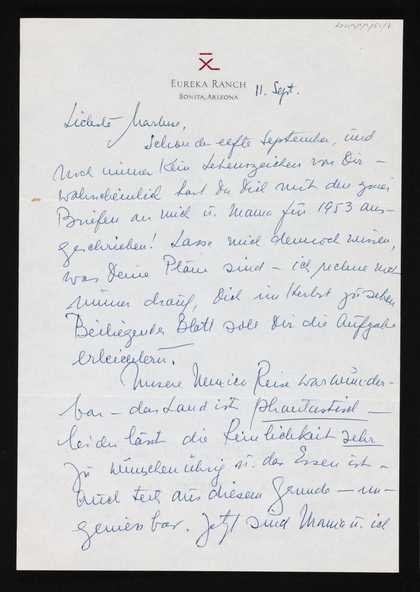 EUREKA RANCH
BONITA, ARIZONA
11. Sept.
Liebste Marlene,
Schon der elfte September, und
noch immer kein Lebenszeichen von Dir –
wahrscheinlich hast Du Dich mit den zwei
Briefen an mich u. Mama für 1953 aus-
geschrieben! Lasse mich dennoch wissen,
was Deine Pläne sind – ich rechne noch
immer drauf, Dich im Herbst zu sehen
Beiliegendes Blatt soll Dir die Aufgabe
erleichtern.
Unsere Mexico Reise war wunder-
bar – das Land ist phantastisch –
leider lässt die Reinlichkeit sehr
zu wünschen übrig u. das Essen ist –
auch teils aus diesem Grunde – un-
geniessbar. Jetzt sind Mama u. ich